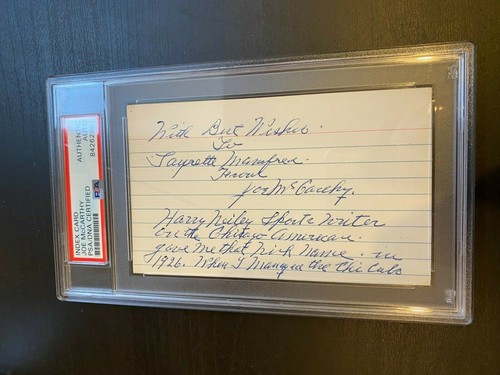 INDEX CARD
JOE McCARTHY
PSA/DNA CERTIFIED
AUTHENTIC
PSA
With Best Wishes.
To
From
Joe McCarthy.
Harry Neiley Sports Writer
on the Chicago American.
gave me that Nick Name. in
1926. When I Managed the Chi Cubs